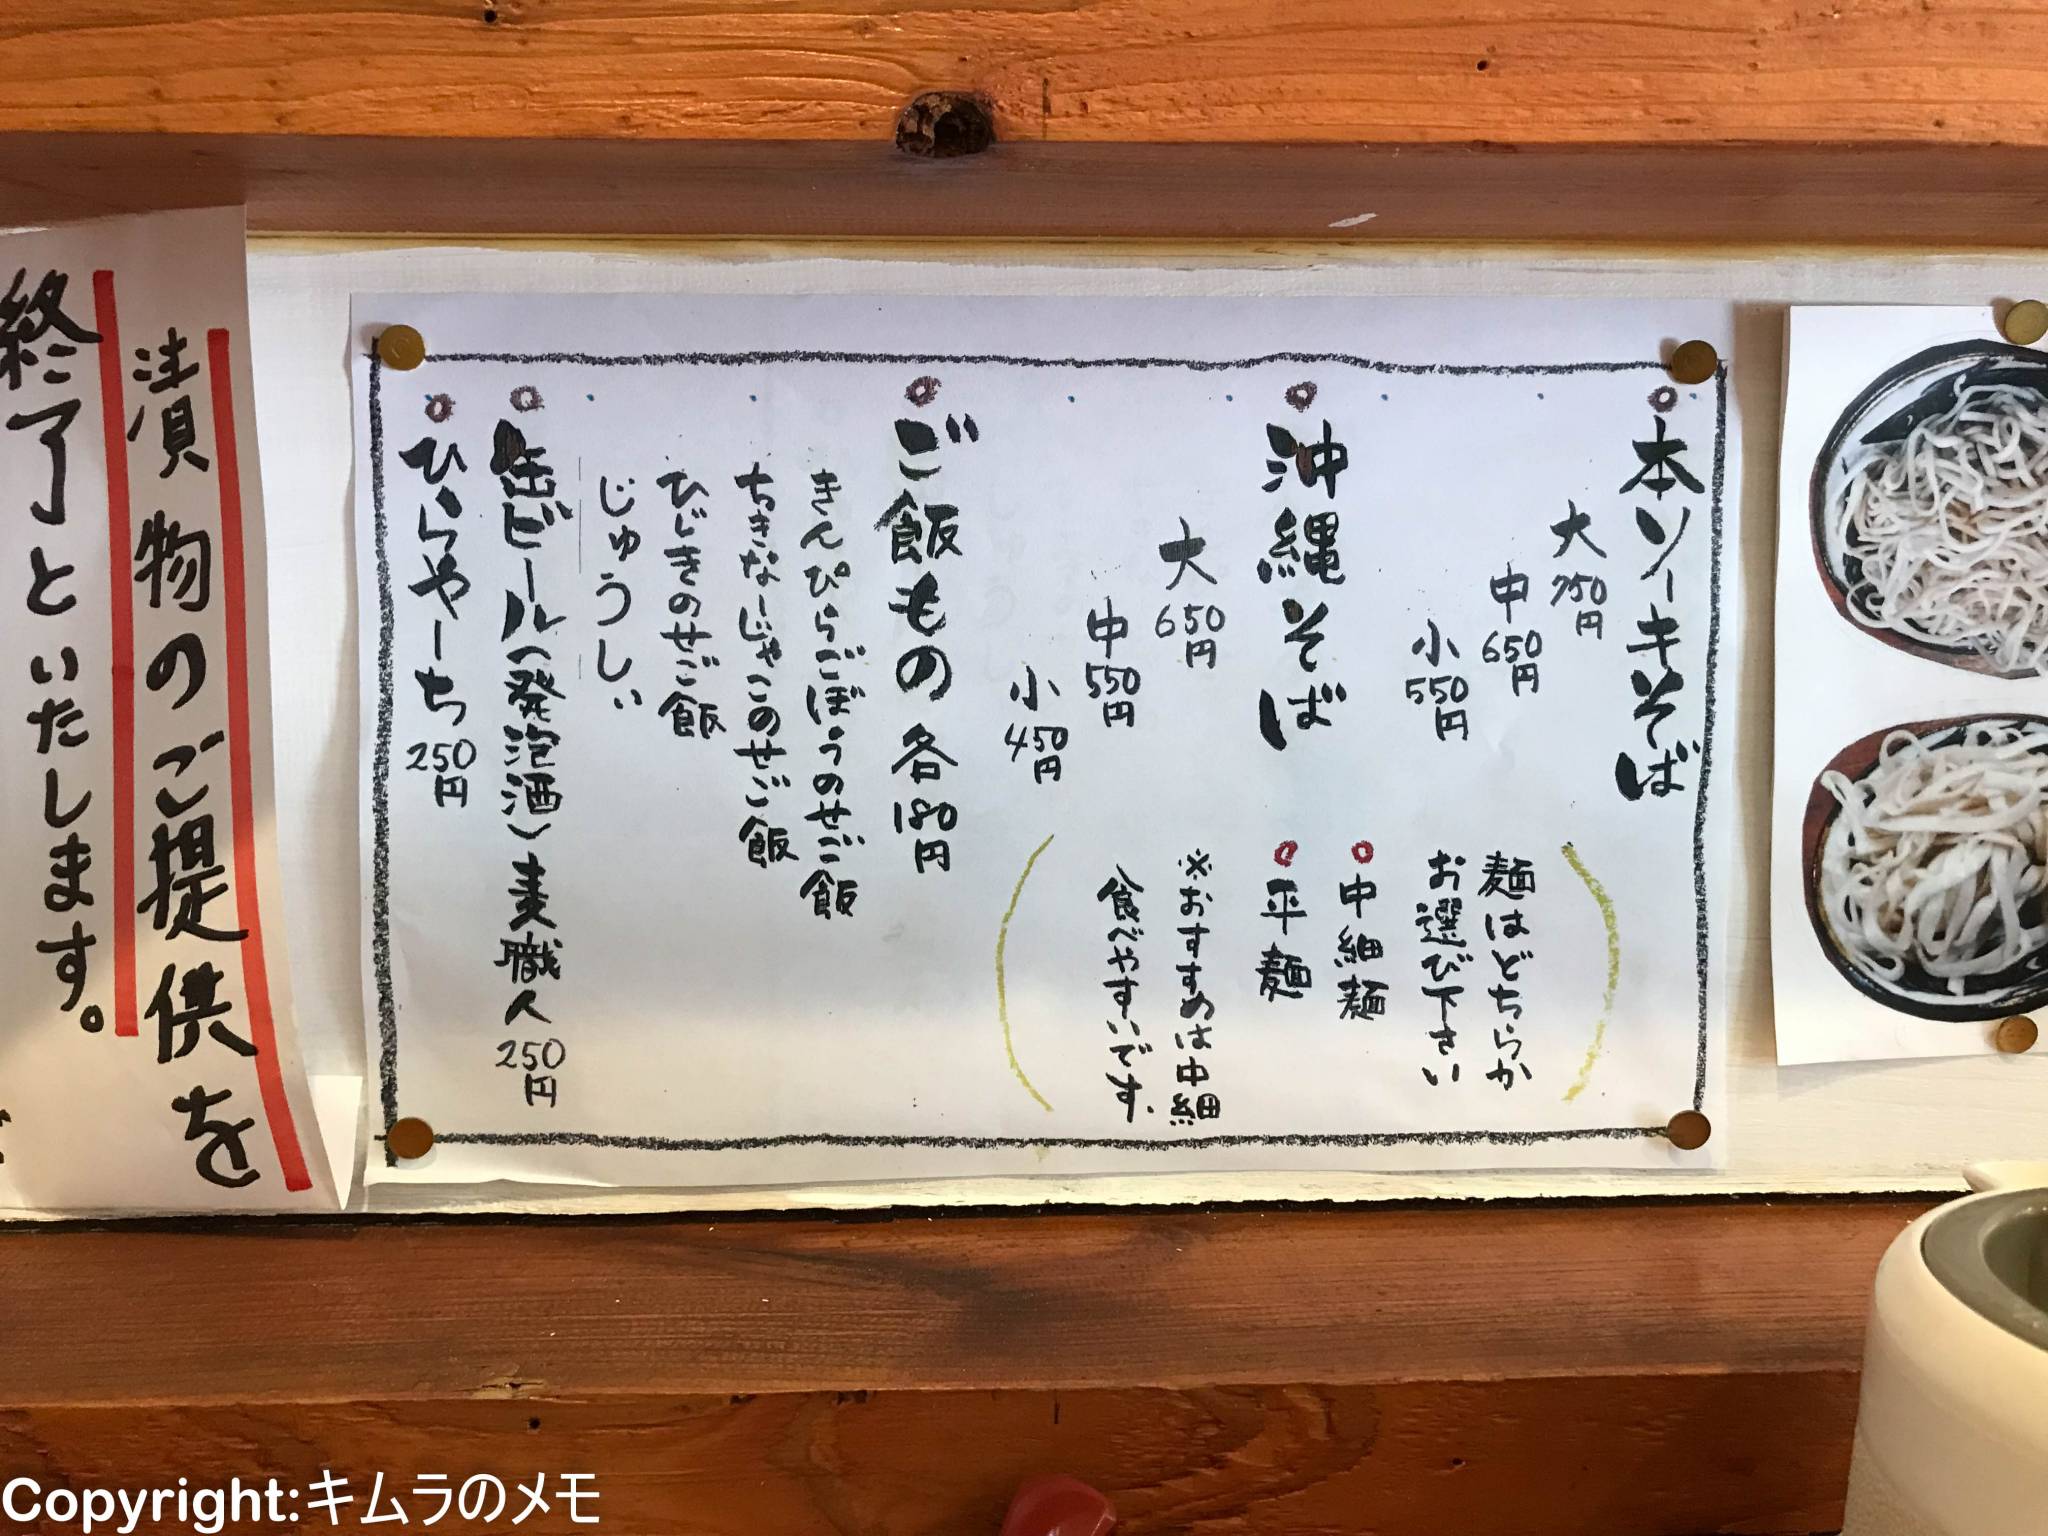 本ソーキそば
大 750円
中 650円
小 550円
沖縄そば
大 650円
中 550円
小 450円
麺はどちらか
お選び下さい
中細麺
平麺
※おすすめは中細
食べやすいです。
ご飯もの 各180円
きんぴらごぼうのせご飯
ちきなーじゃこのせご飯
ひじきのせご飯
じゅうしぃ
缶ビール(発泡酒)麦職人 250円
ひらやーち 250円
漬物のご提供を
終了といたします。
Copyright:キムラのメモ